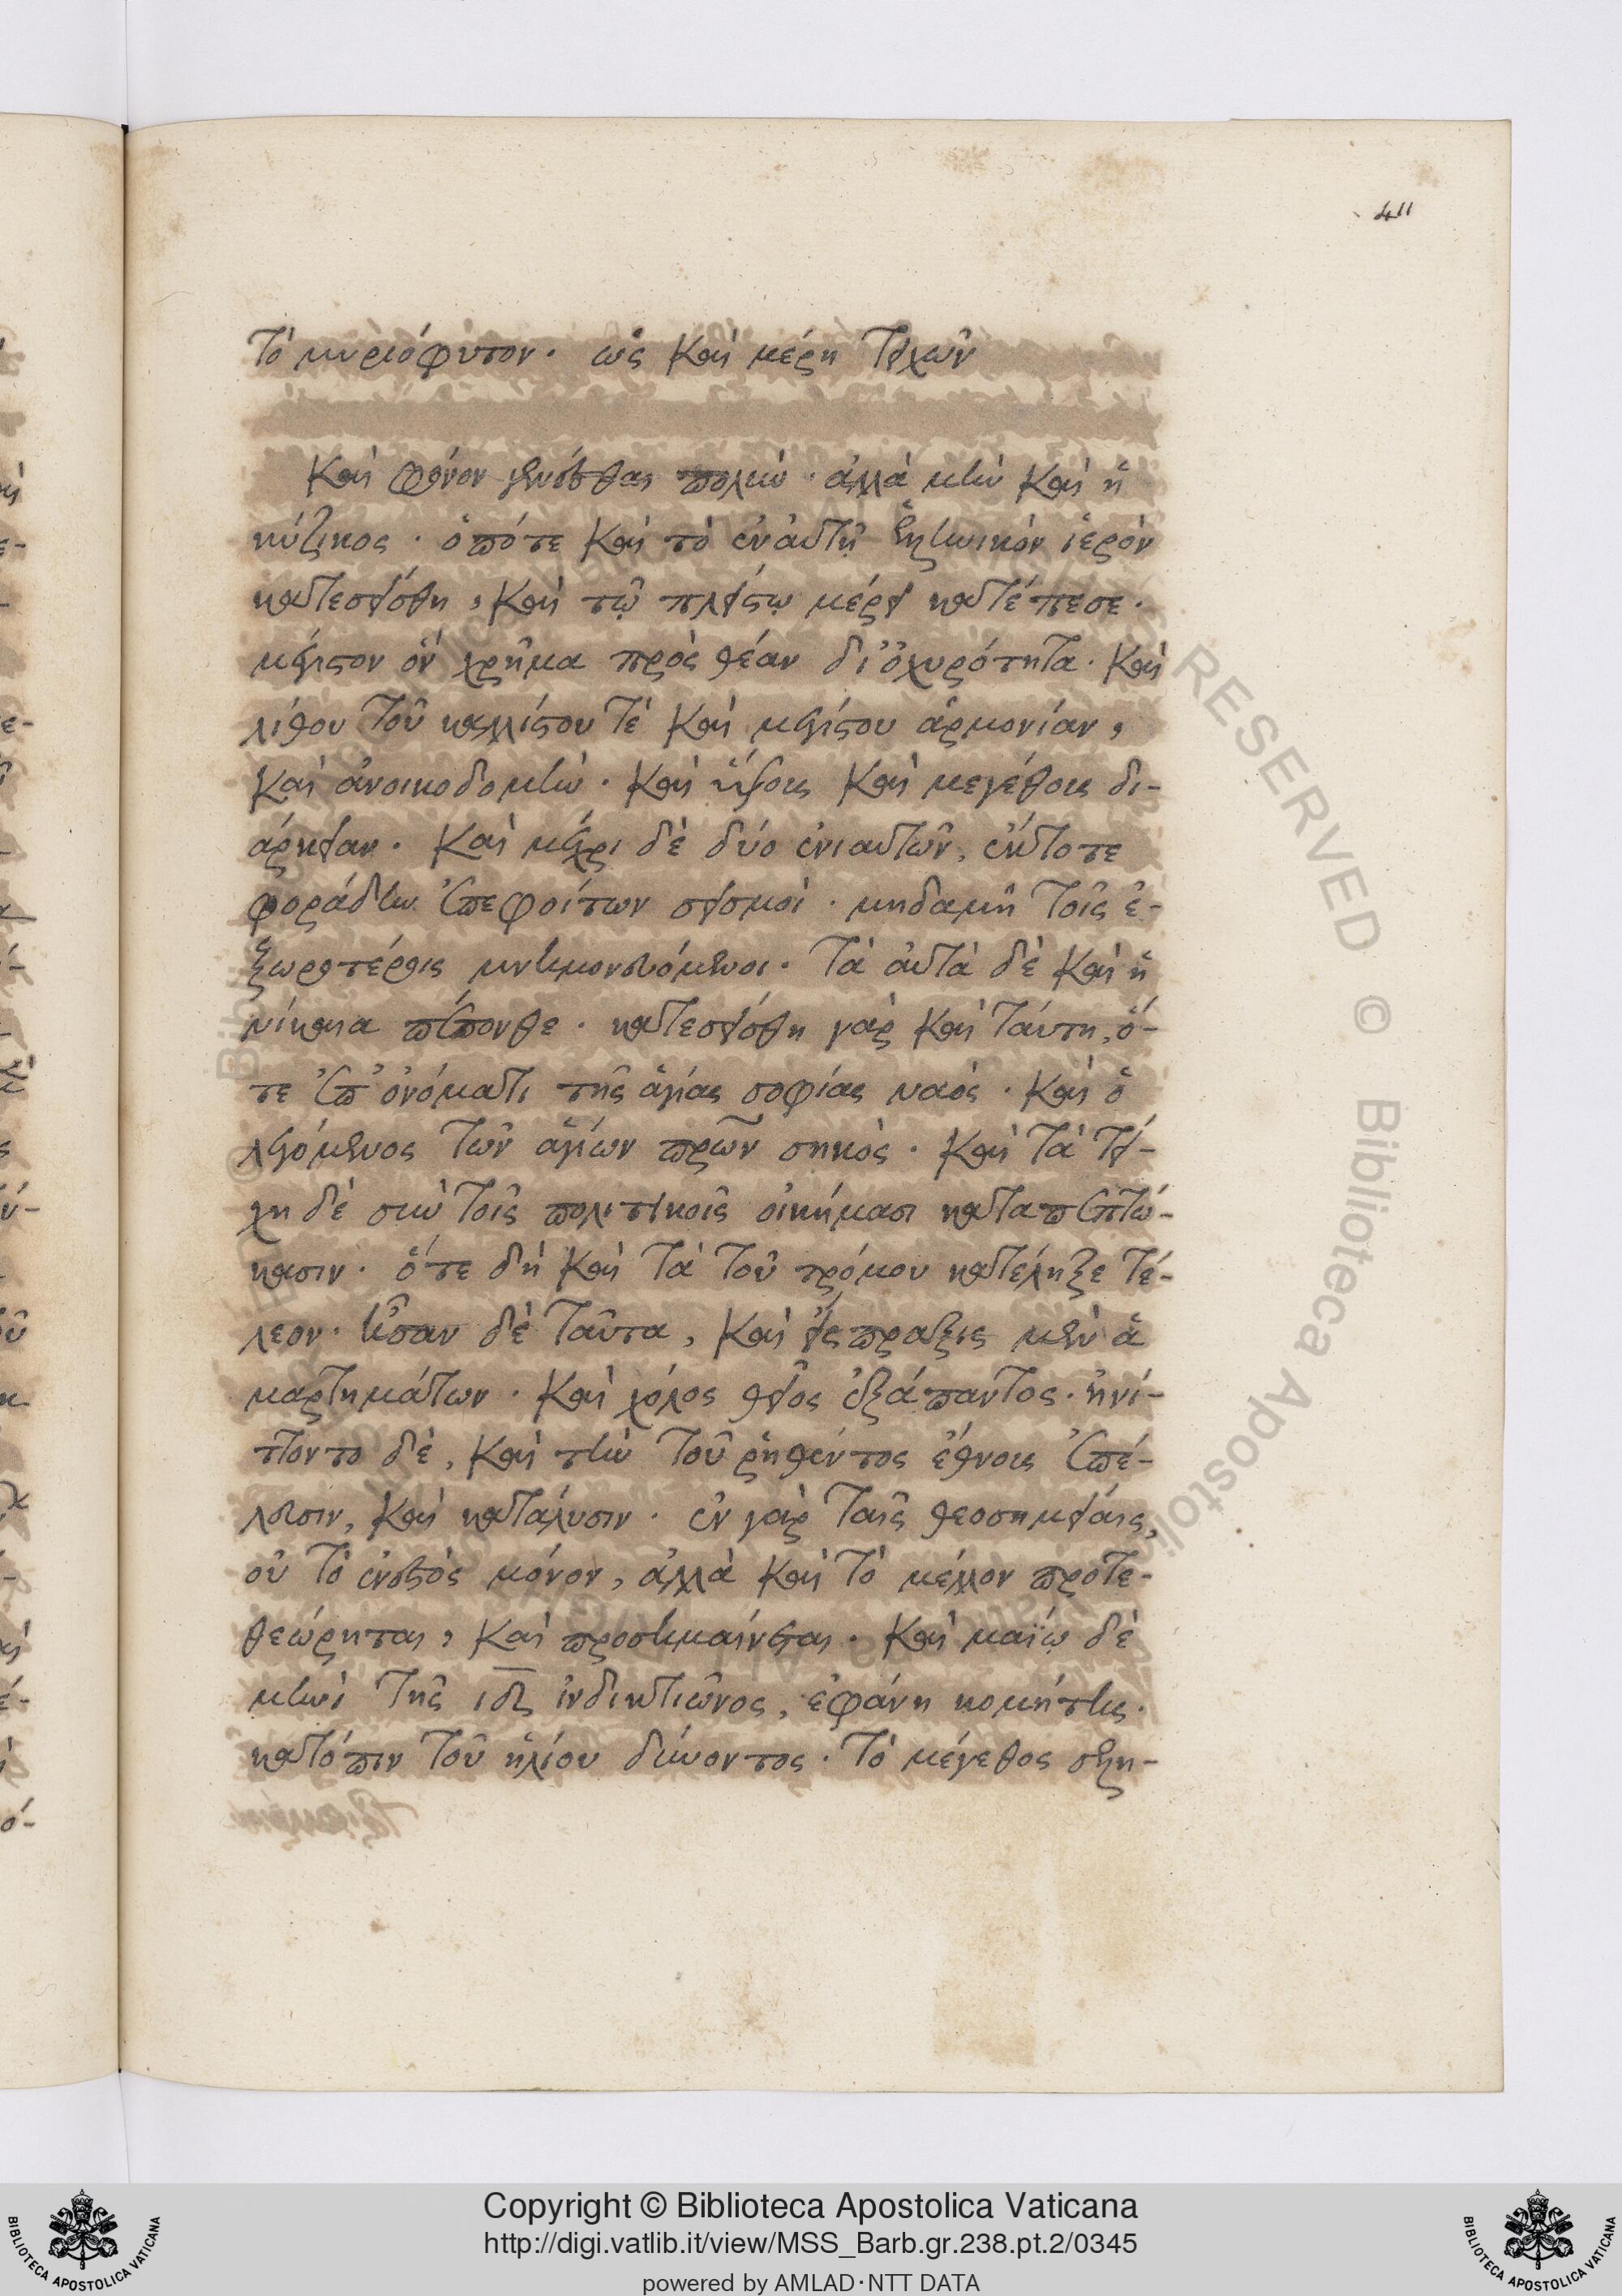 411
τὸ μυριόφυτον. ὡς καὶ μέρη τειχῶν
καὶ φόνον γενέσθαι πολὺν. ἀλλὰ μὴν καὶ ἡ
κύζικος. ὁπότε καὶ τὸ ἐν αὐτῇ ἑλληνικὸν ἱερὸν
κατεσείσθη, καὶ τῷ πλείστῳ μέρει κατέπεσε.
μέγιστον ὂν χρῆμα πρὸς θέαν δι' ὀχυρότητα. καὶ
λίθου τοῦ καλλίστου τὲ καὶ μεγίστου ἁρμονίαν,
καὶ ἀνοικοδομὴν. καὶ ὕψους καὶ μεγέθους δι-
άρκειαν. καὶ μέχρι δὲ δύο ἐνιαυτῶν, ἔκτοτε
φοράδην ἐπεφοίτων σεισμοὶ. μηδαμῆ τοῖς ἐ-
ξωροτέροις μνημονευόμενοι. τὰ αὐτὰ δὲ καὶ ἡ
νίκαια πέπονθε. κατεσείσθη γὰρ καὶ ταύτη, ὅ-
τε ἐπ' ὀνόματι τῆς ἁγίας σοφίας ναός. καὶ ὁ
λεγόμενος τῶν ἁγίων πρων σηκὸς. καὶ τὰ τεί-
χη δὲ σὺν τοῖς πολιτικοῖς οἰκήμασι καταπεπτώ-
κασιν. ὅτε δὴ καὶ τὰ τοῦ τρόμου κατέληξε τέ-
λεον. ἦσαν δὲ ταῦτα, καὶ εἴσπραξις μὲν ἁ
μαρτημάτων. καὶ χόλος θεῖος ἐξάπαντος. ἠνί-
ττοντο δὲ, καὶ τὴν τοῦ ῥηθέντος ἔθνους ἐπέ-
λευσιν, καὶ κατάλυσιν. ἐν γὰρ ταῖς θεοσημείαις,
οὐ τὸ ἐνεστὸς μόνον, ἀλλὰ καὶ τὸ μέλλον προτε-
θεώρηται, καὶ προσημαίνεται. καὶ μαΐω δὲ
μηνὶ τῆς ιδης ἰνδικτιῶνος, ἐφάνη κομήτης.
κατόπιν τοῦ ἡλίου δύνοντος. τὸ μέγεθος σελη-
Copyright © Biblioteca Apostolica Vaticana
http://digi.vatlib.it/view/MSS_Barb.gr.238.pt.2/0345
powered by AMLAD·NTT DATA